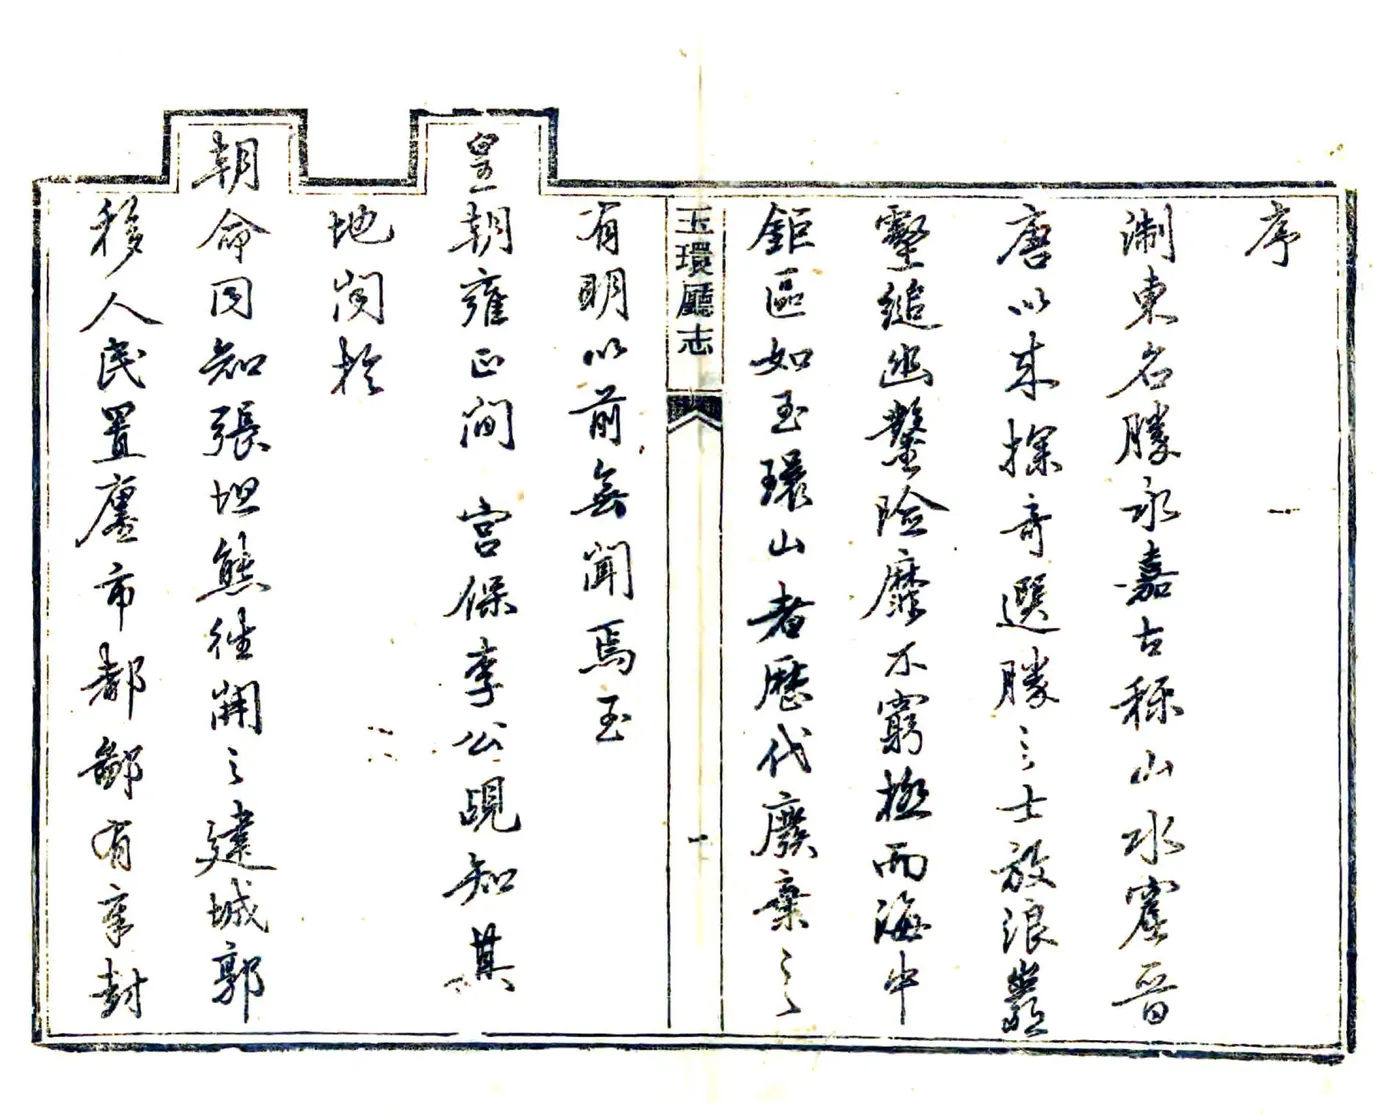 序
浙東名勝永嘉古稱山水窟晉
唐以來探奇選勝之士放浪巖
壑縋幽鑿險靡不窮極而海中
鉅區如玉環山者歷代廢棄之
玉環廳志
一
有明以前無聞焉至
皇朝雍正間 宮保李公覘知其
地闊於
朝命同知張坦熊往開之建城郭
移人民置廛市都鄙有章封